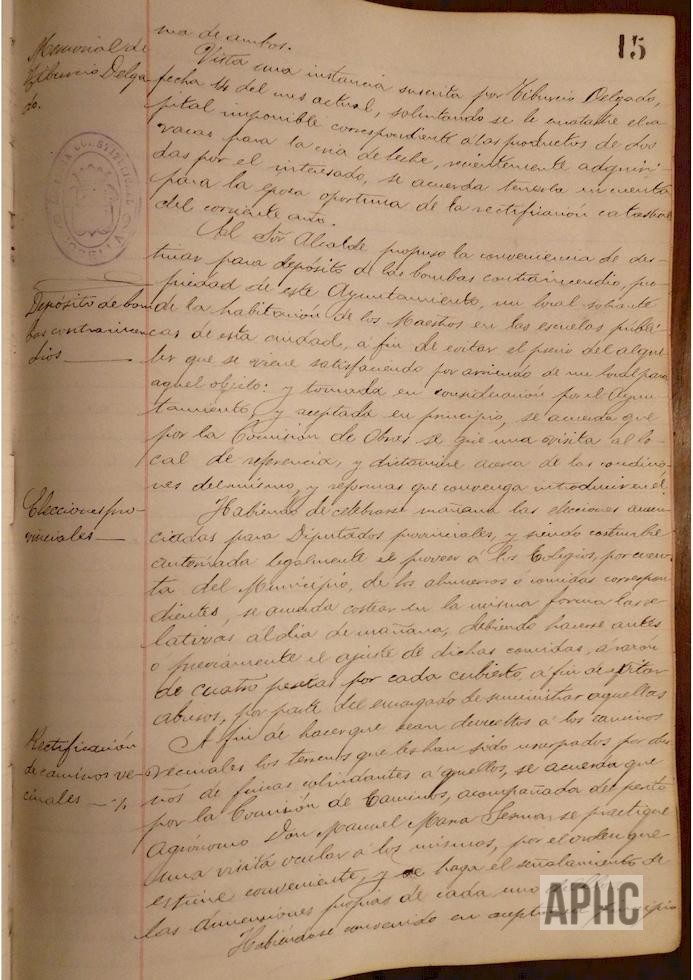 15
ma de ambos.
Memorial de
Tiburcio Delga
do.
Vista una instancia suscrita por Tiburcio Delgado,
fecha 14 del mes actual, solicitando se le encatastre el ca
pital imponible correspondiente a las productos de dos
vacas para la cria de leche, recientemente adquiri-
das por el interesado, se acuerda tenerla en cuenta
para la época oportuna de la rectificación catastral
del corriente año.
Depósito de bom
bas contra incen
dios
El Sor Alcalde propuso la conveniencia de des-
tinar para depósito de las bombas contra incendio, pro-
piedad de este Ayuntamiento, un local sobrante
de la habitación de los Maestros en las escuelas públi-
cas de esta ciudad, a fin de evitar el precio del alqui-
ler que se viene satisfaciendo por arriendo de un local para
aquel objeto: y tomada en consideración por el Ayun-
tamiento, y aceptada en principio, se acuerda que
por la Comisión de Obras se gire una visita al lo-
cal de referencia, y dictamine acerca de las condicio-
nes del mismo, y reformas que convenga introducir en él.
Elecciones pro-
vinciales
Habiendo de celebrarse mañana las elecciones anun-
ciadas para Diputados provinciales, y siendo costumbre
autorizada legalmente el proveer a los Colegios, por cuen-
ta del Municipio, de los almuerzos ó comidas correspon-
dientes, se acuerda costear en la misma forma las re-
lativas al dia de mañana, debiendo hacerse antes
o previamente el ajuste de dichas comidas, á razón
de cuatro pesetas por cada cubierto, a fin de evitar
abusos, por parte del encargado de suministrar aquellas
Rectificación
de caminos ve-
cinales
A fin de hacer que sean devueltos á los caminos
vecinales los terrenos que les han sido usurpados por due
ños de fincas colindantes á aquellos, se acuerda que
por la Comisión de Caminos, acompañada del perito
Agrónomo Don Manuel Maria Sesma, se practique
una visita ocular á los mismos, por el orden que
estime conveniente, y se haga el señalamiento de
las dimensiones propias de cada uno
Habiéndose convenido en principio
APHC